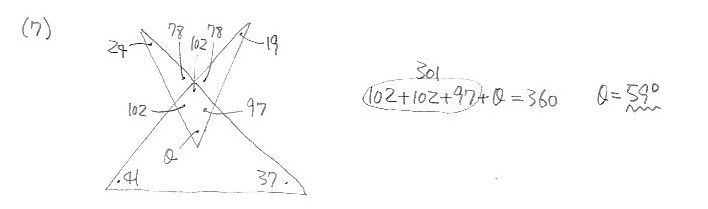 (7)
78 78
24 102 19
102 97
θ
41 37
301
102+102+97+θ=360 θ=59°